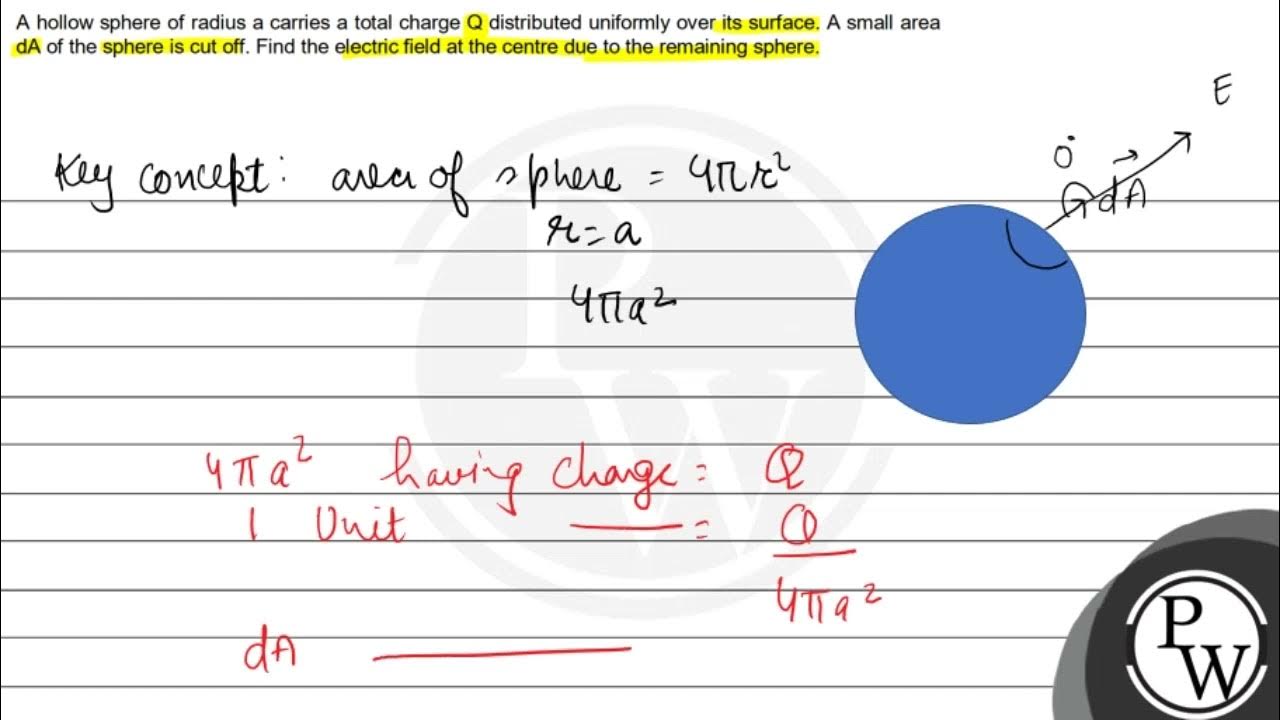 A hollow sphere of radius a carries a total charge Q distributed uniformly over its surface. A small area
dA of the sphere is cut off. Find the electric field at the centre due to the remaining sphere.
E
Key concept: area of sphere = 4πr²
r = a
4πa²
dA
4πa² having charge = Q
1 Unit —— = Q/4πa²
dA ——
PW
PW